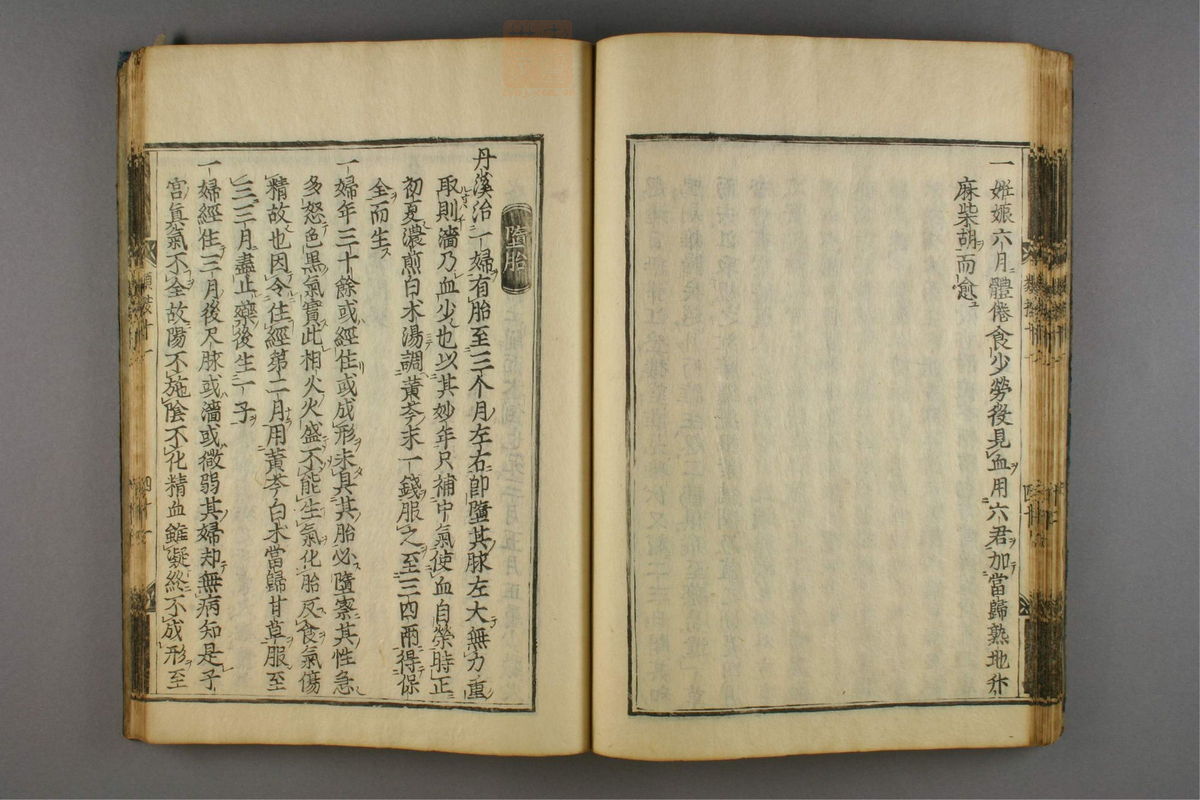 一姙娠六月體倦食少勞役見血用六君加當歸熟地升
麻柴胡而愈
墮胎
丹溪治一婦有胎至三个月左右卽墮其脉左大無力重
取則濇乃血少也以其妙年只補中氣使血自榮時正
初夏濃煎白朮湯調黃芩末一錢服之至三四兩得保
全而生
一婦年三十餘或經住或成形未具其胎必墮察其性急
多怒色黑氣實此相火火盛不能生氣化胎反食氣傷
精故也因令住經第二月用黃芩白朮當歸甘草服至
三三月盡止藥後生一子
一婦經住三月後尺脉或濇或微弱其婦却無病知是子
宮眞氣不全故陽不施陰不化精血雖凝終不成形至